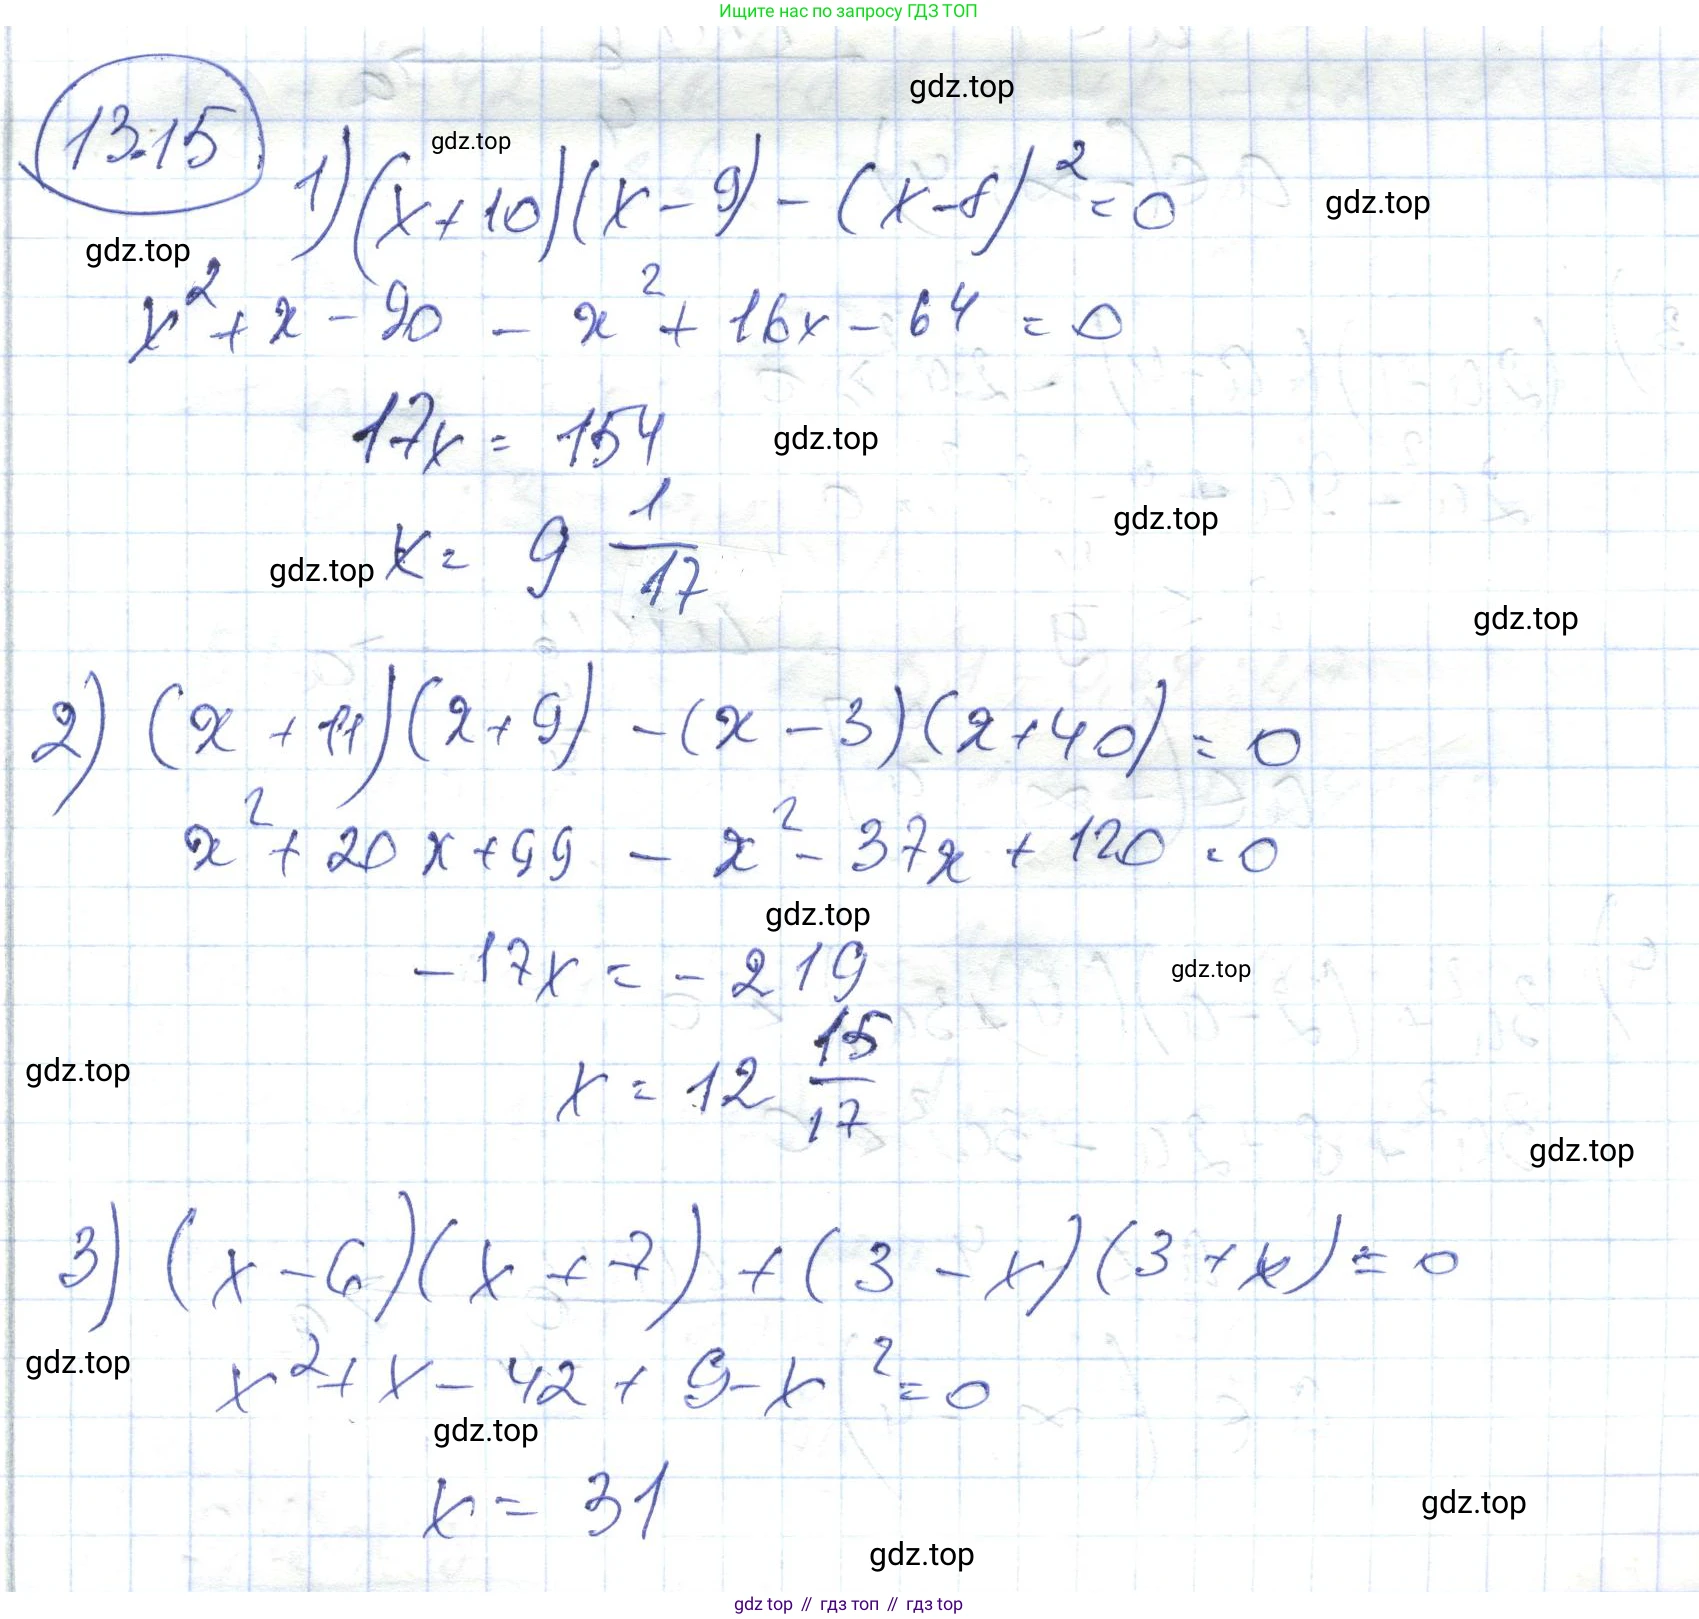 Ищите нас по запросу ГДЗ ТОП
gdz.top
13.15
gdz.top
1) (x+10)(x-9) - (x-8)² = 0
gdz.top
gdz.top
x² + x - 90 - x² + 16x - 64 = 0
17x = 154
gdz.top
gdz.top
x = 9 1/17
gdz.top
gdz.top
2) (x+11)(x+9) - (x-3)(x+40) = 0
x² + 20x + 99 - x² - 37x + 120 = 0
gdz.top
-17x = -219
gdz.top
x = 12 15/17
gdz.top
gdz.top
3) (x-6)(x+7) + (3-x)(3+x) = 0
gdz.top
x² + x - 42 + 9 - x² = 0
gdz.top
x = 31
gdz.top
gdz.top
gdz top // гдз топ // гдз top